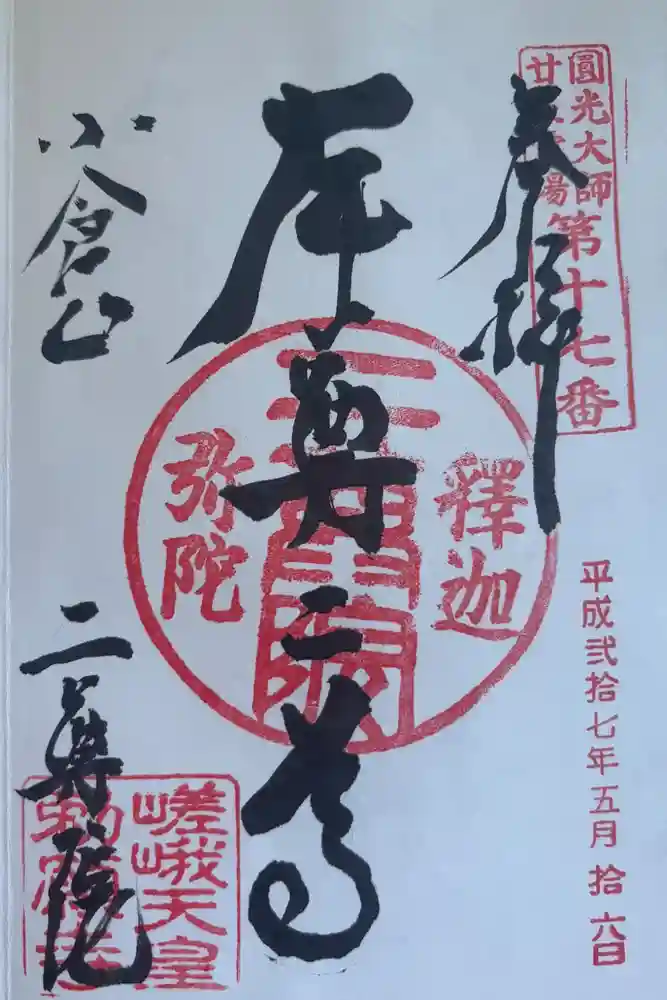 圓光大師
廿五霊場
第十七番
奉拝
平成弐拾七年五月拾六日
本尊二尊
釋迦
二尊院
弥陀
小倉山
二尊院
嵯峨天皇
勅願